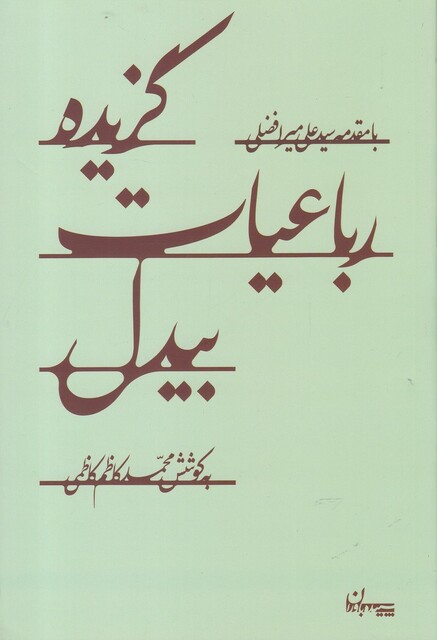 گزیده
با مقدمه سید علی میرافضلی
رباعیات
بیدل
به کوشش محمدکاظم کاظمی
سپیده‌باوران